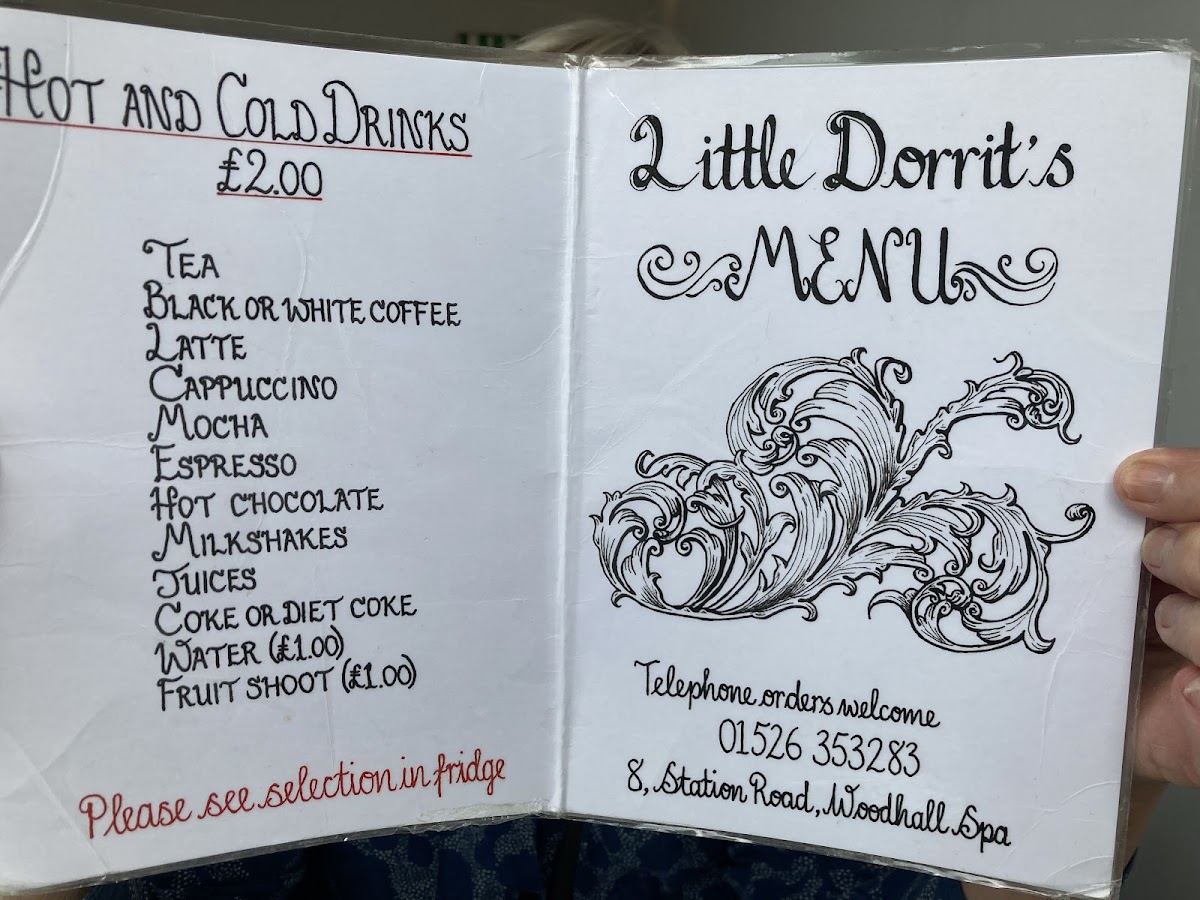 HOT AND COLD DRINKS
£2.00
TEA
BLACK OR WHITE COFFEE
LATTE
CAPPUCCINO
MOCHA
ESPRESSO
HOT CHOCOLATE
MILKSHAKES
JUICES
COKE OR DIET COKE
WATER (£1.00)
FRUIT SHOOT (£1.00)
Please see selection in fridge
Little Dorrit's
MENU
Telephone orders welcome
01526 353283
8, Station Road, Woodhall Spa